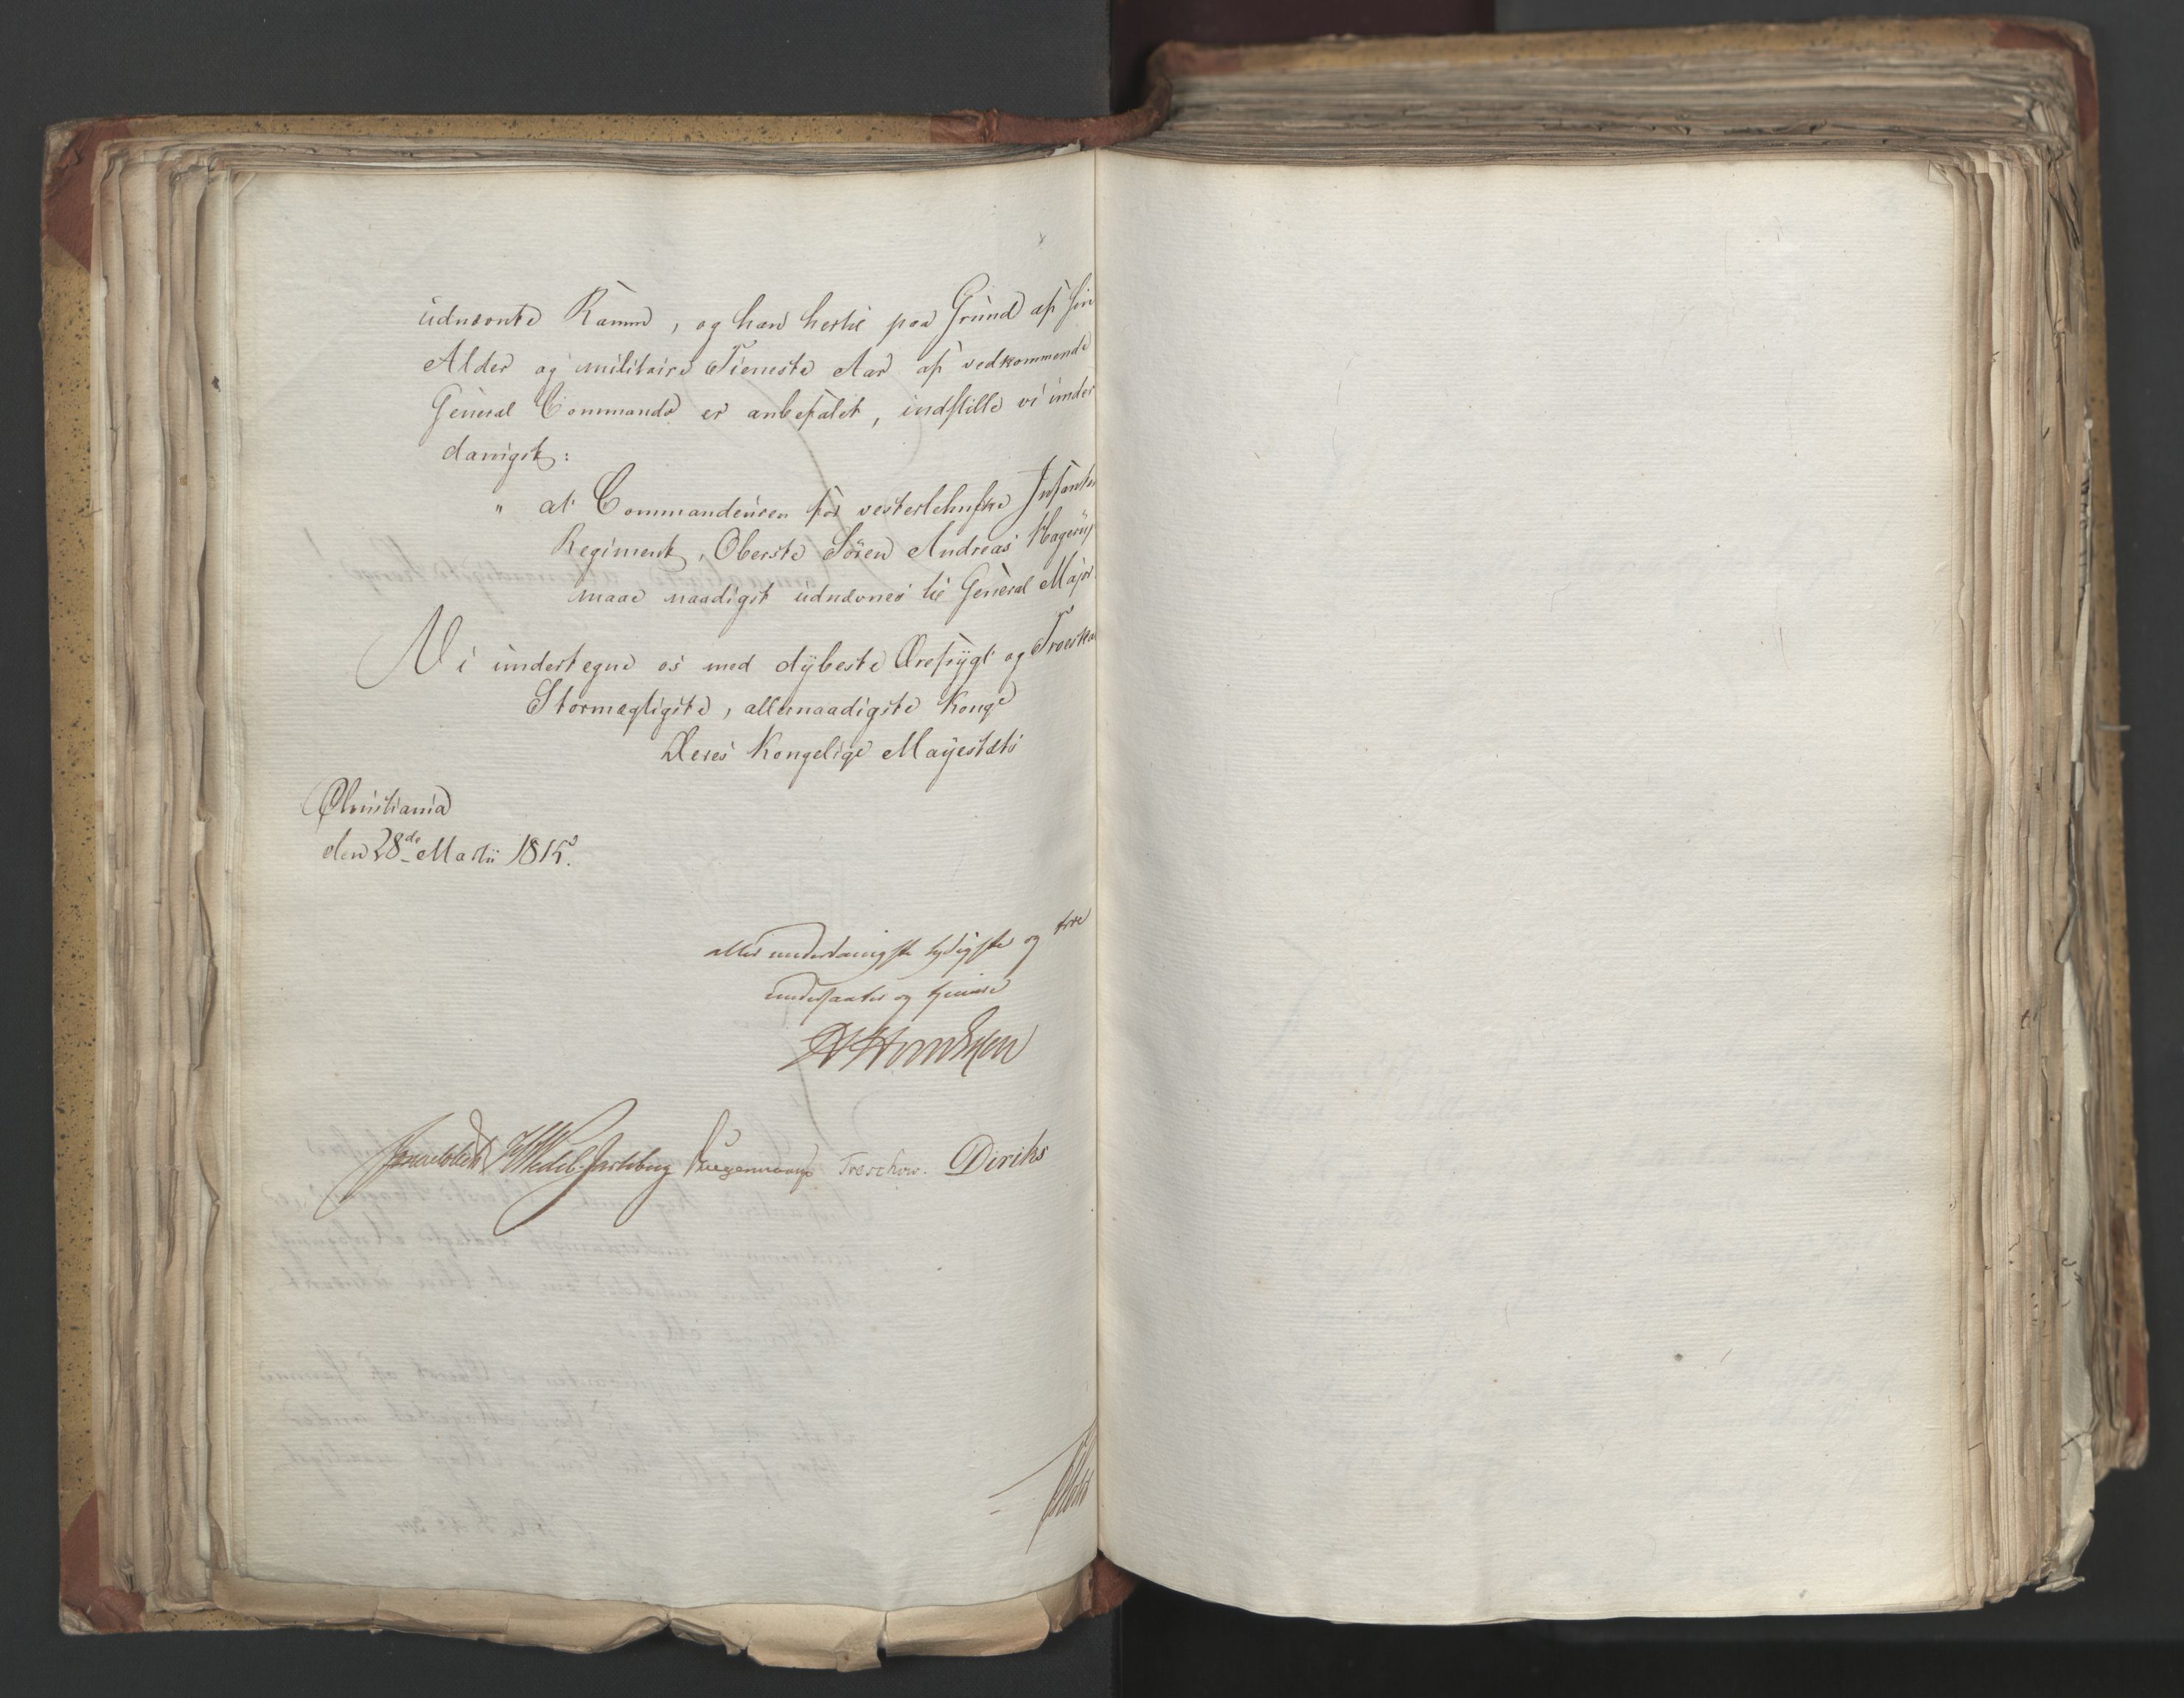 udnævnte Kamme, og han hertil paa Grund af sin
Alder og militaire Tieneste Aar af vedkommende
General Commando er anbefalet, indstille vi under
danigst:
" at Commandeuren for vesterlehnske Infanter
Regiment, Oberste Sören Andreas Hagerup
maae naadigst udnævnes til General Major.
Vi undertegne os med dybeste Ærefrygt og Troeska
Stormægtigste, allernaadigste Konge
Deres Kongelige Mayestæts
Christiania
den 28de Martii 1815.
aller underdanigste lydigste og troe
undersaatter og tjenere
Sommerhielm HWedel-Jarlsberg Treschow. Diriks